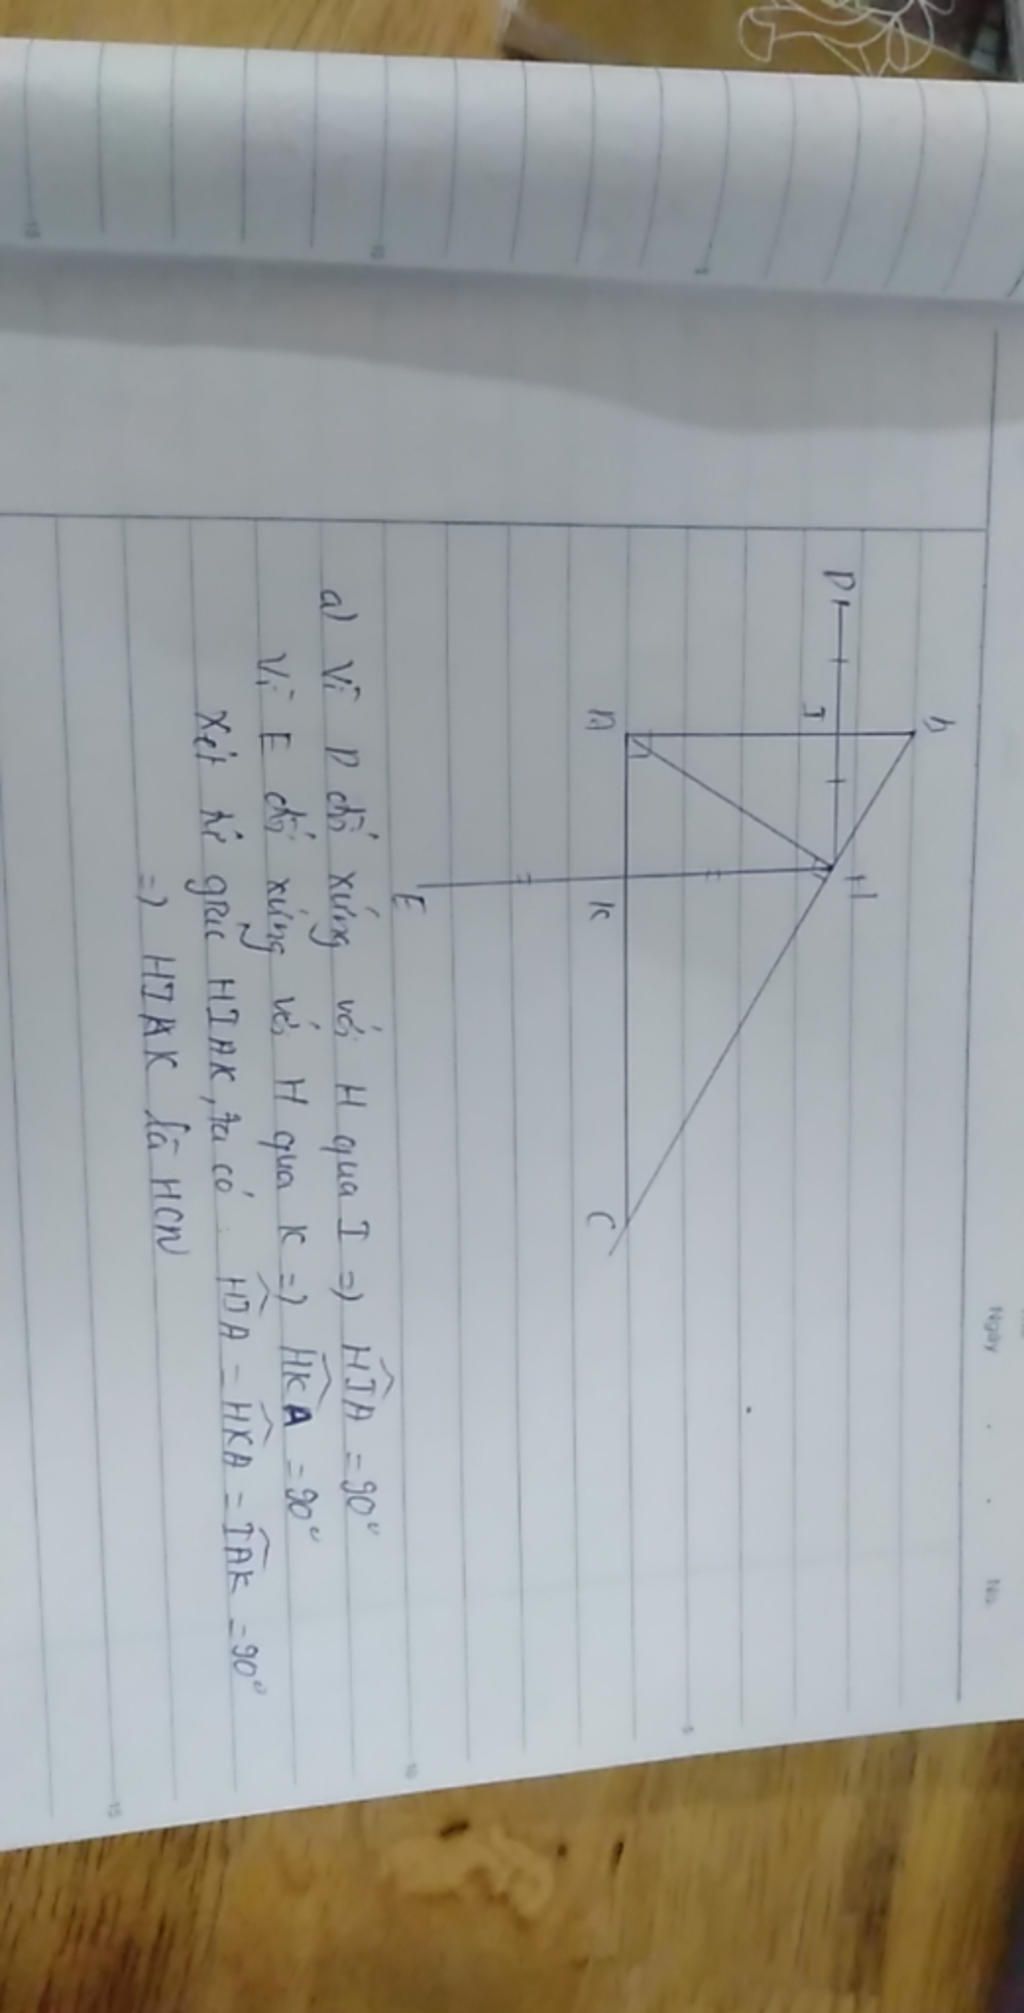 Ngày
No.
B
D
I
H
A
K
C
E
5
10
15
a) Vì D đối xứng với H qua I => HIA = 90°
Vì E đối xứng với H qua K => HKA = 90°
Xét tứ giác HIAK, ta có : HIA = HKA = IAK = 90°
=> HIAK là HCN